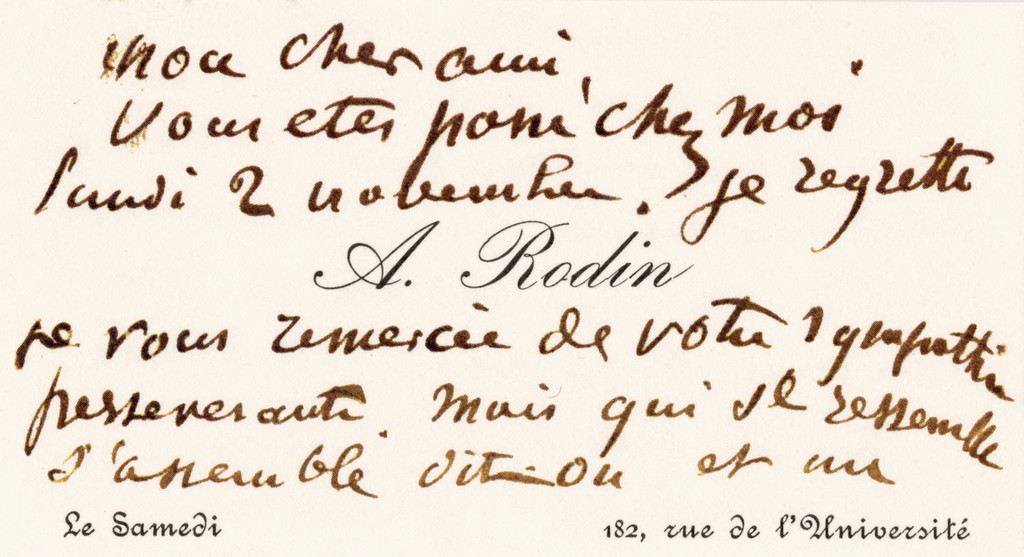 mon cher ami,
Vous etes passé chez moi
lundi 2 novembre. je regrette
A. Rodin
je vous remercie de votre sympathie
perseverante. mais qui se ressemble
s'assemble dit-on et un
Le Samedi
182, rue de l'Université